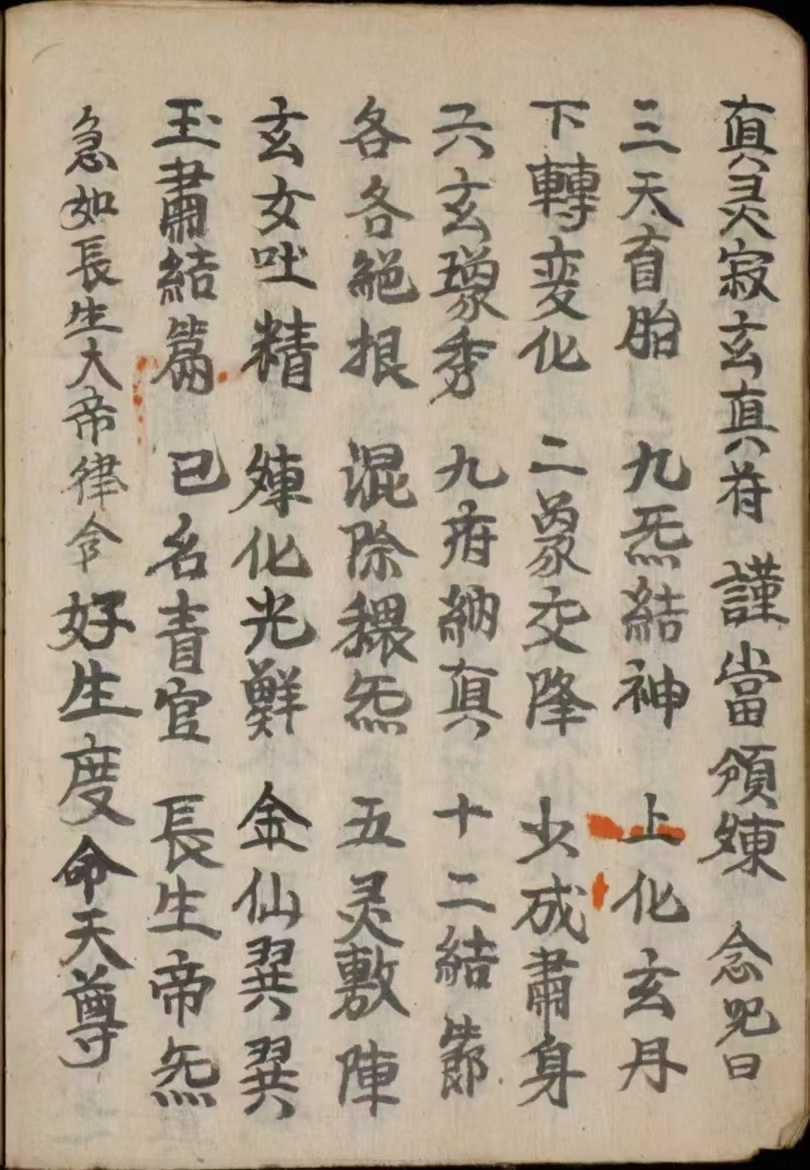 真灵寂玄真符 謹當頒煉 念咒曰
三天育胎 九炁結神 上化玄丹
下轉変化 二象交降 少成肅身
六玄瓊秀 九府納真 十二結節
各各絕根 混除穢炁 五灵敷陣
玄女吐精 煉化光鮮 金仙翼翼
玉肅結篇 已名青宫 長生帝炁
急如長生大帝律令 好生度命天尊